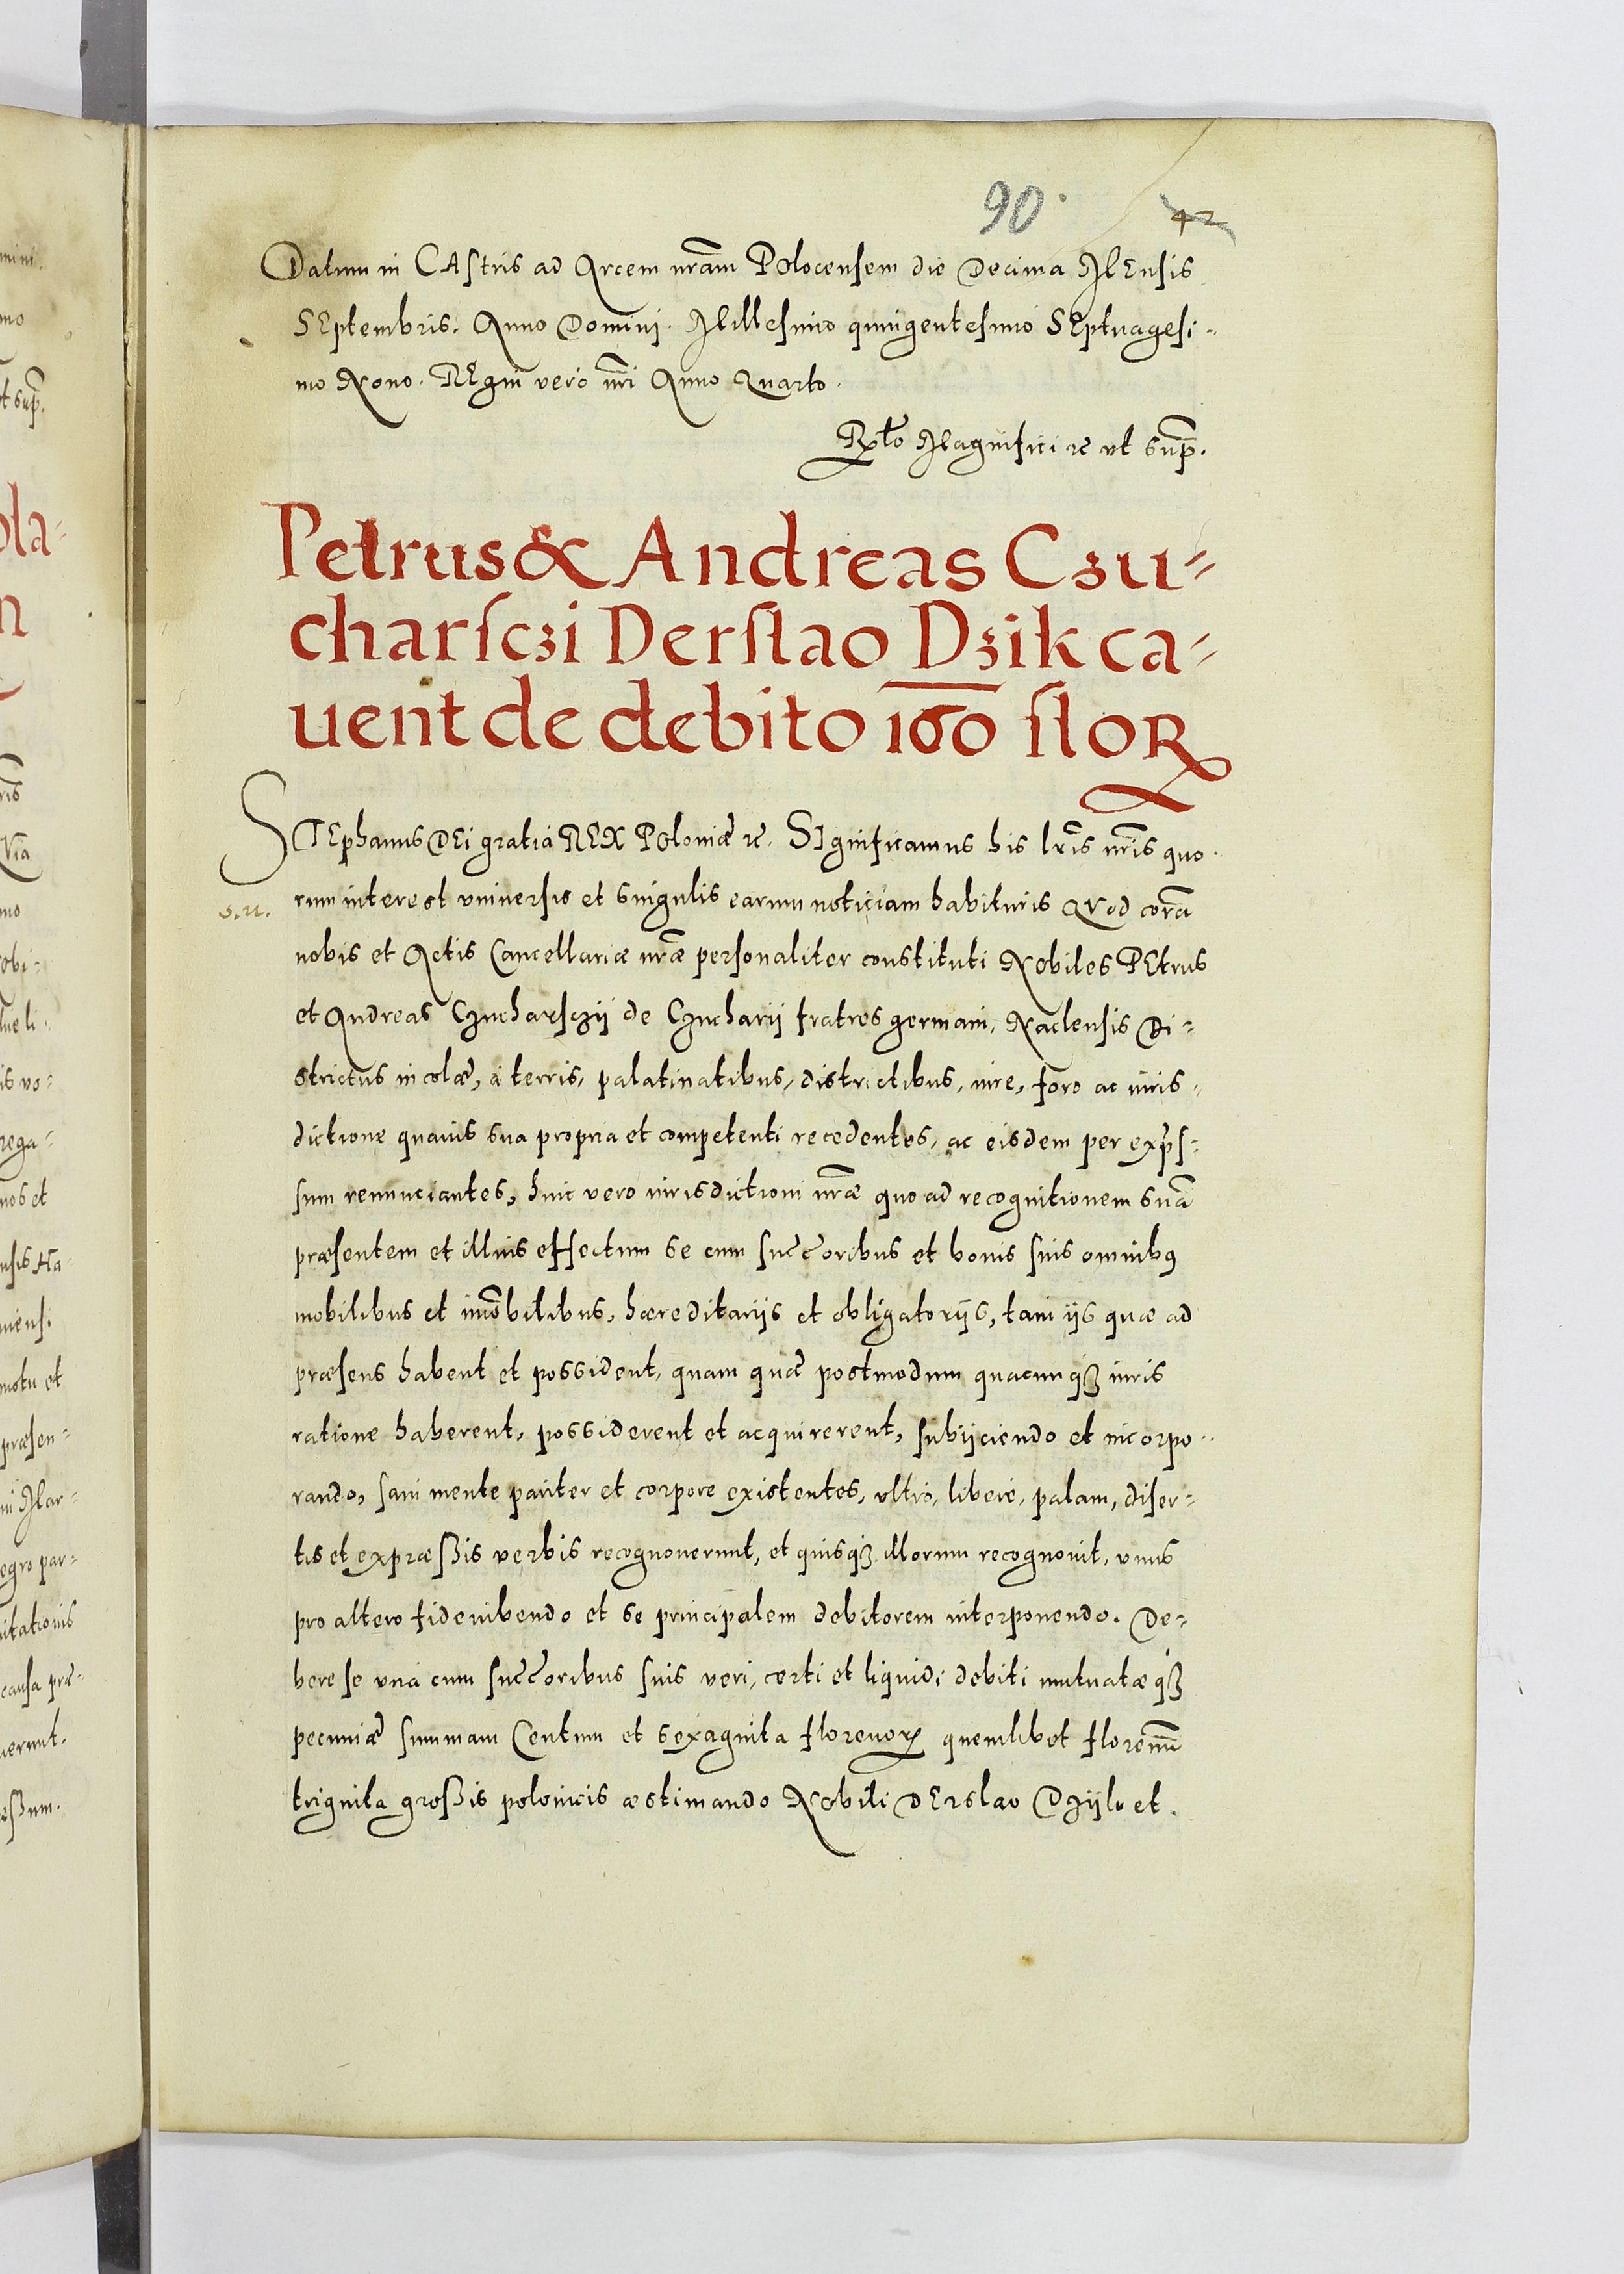 90.
42
Datum in CAstris ad Arcem nr̃am POlocensem die Decima MEnsis
SEptembris. Anno Domini. Millesimo quingentesimo SEptuagesi-
mo Nono. REgni vero nr̃i Anno Quarto.
Magnifici ꝛc vt sup̃.
Petrus & Andreas Czu-
charſczi Derſlao Dzik ca-
uent de debito 160 floꝝ
STEphanus DEi gratia REX POloniæ ꝛc. SIgnificamus his lr̃is nr̃is quo-
s. u.
rum interest vniuersis et singulis earum noticiam habituris QVod corã
nobis et Actis Cancellariæ nr̃æ personaliter constituti Nobiles PEtrus
et Andreas Czucharsczÿ de Czucharÿ fratres germani, Naclensis Di-
strictus incolæ, à terris, palatinatibus, districtibus, iure, foro ac iuris-
dictione quauis sua propria et competenti recedentes, ac eisdem per exp̃s-
sum renunciantes, huic vero iurisdictioni nr̃æ quo ad recognitionem suã
præsentem et illius effectum se cum succ̃oribus et bonis suis omnibꝰ
mobilibus et im̃obilibus, hæreditarijs et obligatorijs, tam ijs quæ ad
præsens habent et possident, quam quæ postmodum quacunqꝫ iuris
ratione haberent, possiderent et acquirerent, subijciendo et incorpo-
rando, sani mente pariter et corpore existentes, vltrò, liberè, palam, diser-
tis et expræßis verbis recognouerunt, et quisqꝫ illorum recognouit, vnus
pro altero fideiubendo et se principalem debitorem interponendo. De-
bere se vnà cum succ̃oribus suis veri, certi et liquidi debiti mutuatæqꝫ
pecuniæ summam Centum et sexaginta florenoꝝ quemlibet florenũ
triginta großis polonicis æstimando Nobili DErslao Dzÿk et.